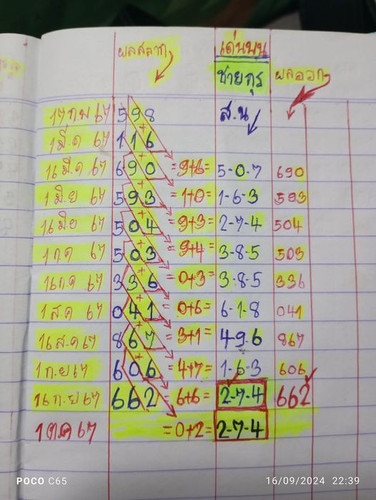 ผลสลาก เด่นบน
ชายกรุ ผลออก
17 กพ 67 598 ส.น
1 มีค 67 116
16 มีค 67 690 =9+6= 5-0-7 690
1 มิย 67 593 =1+0= 1-6-3 593
16 มิย 67 504 =9+3= 2-7-4 504
1 กค 67 503 =9+4= 3-8-5 503
16 กค 67 336 =0+3= 3-8-5 336
1 สค 67 041 =0+6= 6-1-8 041
16 ส.ค 67 867 =3+1= 49.6 867
1 ก.ย 67 606 =4+7= 1-6-3 606
16 ก.ย 67 662 =6+6= 2-7-4 662
1 ตค 67 =0+2= 2-7-4
POCO C65 16/09/2024 22:39